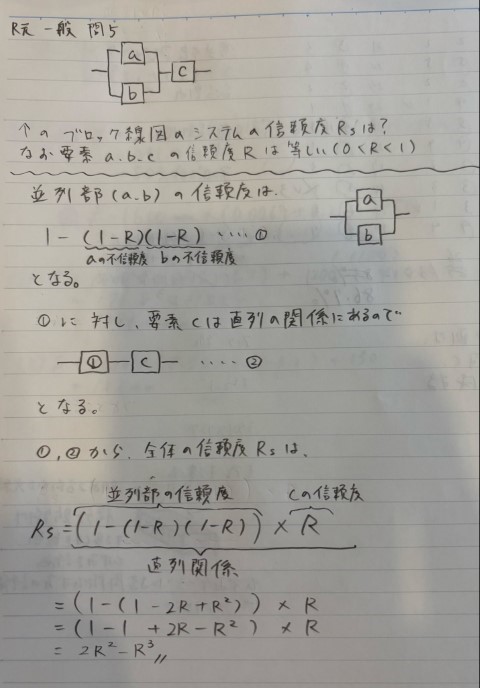 R元 一般 問5
a
b
c
↑の ブロック線図のシステムの信頼度 Rsは?
なお要素 a.b.c の信頼度 R は等しい (0<R<1)
並列部(a.b)の信頼度は、
a
b
1 - (1-R)(1-R) ‥‥ ①
aの不信頼度 bの不信頼度
となる。
①に対し、要素cは直列の関係にあるので
① C ‥‥ ②
となる。
①,②から、全体の信頼度 Rsは、
並列部の信頼度 Cの信頼度
Rs = (1-(1-R)(1-R)) × R
直列関係
= (1-(1-2R+R²)) × R
= (1-1+2R-R²) × R
= 2R²-R³〃